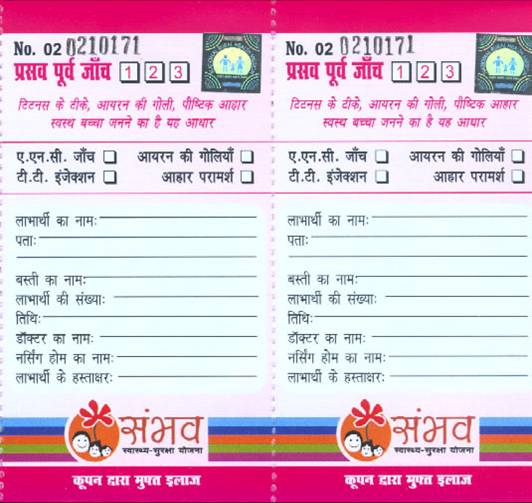 No. 02 0210171
प्रसव पूर्व जाँच 1 2 3
टिटनस के टीके, आयरन की गोली, पौष्टिक आहार
स्वस्थ बच्चा जनने का है यह आधार
ए.एन.सी. जाँच आयरन की गोलियाँ
टी.टी. इंजेक्शन आहार परामर्श
लाभार्थी का नामः
पताः
बस्ती का नामः
लाभार्थी की संख्याः
तिथिः
डॉक्टर का नामः
नर्सिंग होम का नामः
लाभार्थी के हस्ताक्षरः
संभव
स्वास्थ्य-सुरक्षा योजना
कूपन द्वारा मुफ्त इलाज
No. 02 0210171
प्रसव पूर्व जाँच 1 2 3
टिटनस के टीके, आयरन की गोली, पौष्टिक आहार
स्वस्थ बच्चा जनने का है यह आधार
ए.एन.सी. जाँच आयरन की गोलियाँ
टी.टी. इंजेक्शन आहार परामर्श
लाभार्थी का नामः
पताः
बस्ती का नामः
लाभार्थी की संख्याः
तिथिः
डॉक्टर का नामः
नर्सिंग होम का नामः
लाभार्थी के हस्ताक्षरः
संभव
स्वास्थ्य-सुरक्षा योजना
कूपन द्वारा मुफ्त इलाज